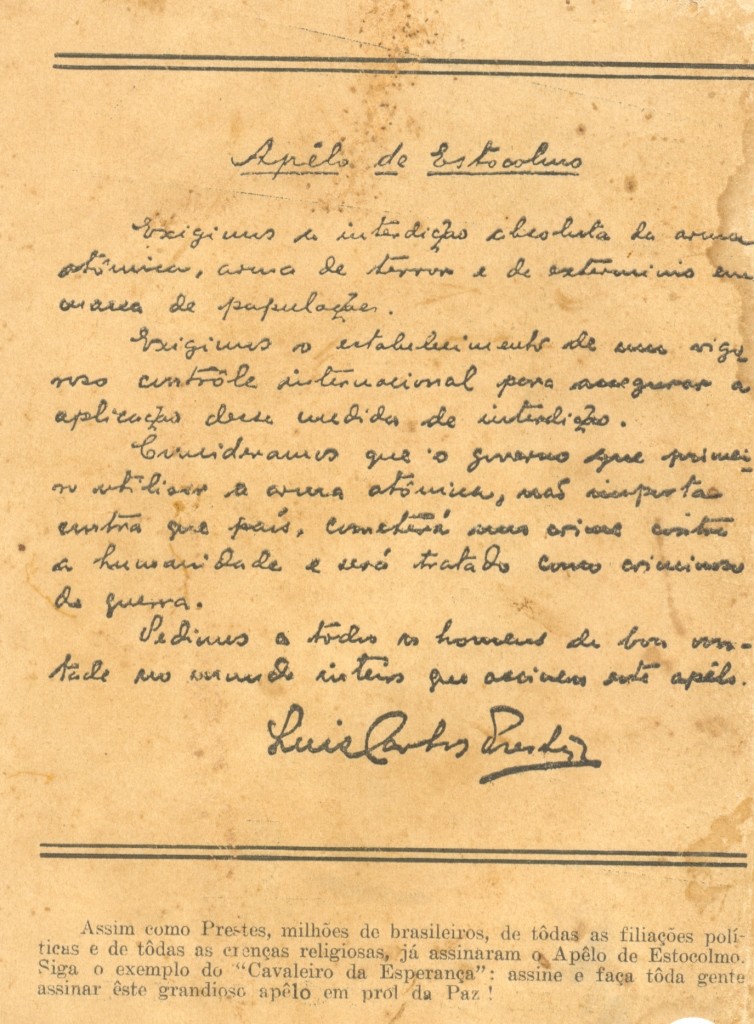 Apêlo de Estocolmo
Exigimos a interdição absoluta da arma
atômica, arma de terror e de extermínio em
massa de populações.
Exigimos o estabelecimento de um rigo
roso contrôle internacional para assegurar a
aplicação dessa medida de interdição.
Consideramos que o governo que primei-
ro utilisar a arma atômica, não importa
contra que país, cometerá um crime contra
a humanidade e será tratado como criminoso
de guerra.
Pedimos a todos os homens de boa von-
tade no mundo inteiro que assinem este apêlo.
Luis Carlos Prestes
Assim como Prestes, milhões de brasileiros, de tôdas as filiações polí-
ticas e de tôdas as crenças religiosas, já assinaram o Apêlo de Estocolmo.
Siga o exemplo do "Cavaleiro da Esperança": assine e faça tôda gente
assinar êste grandioso apêlo em prol da Paz !